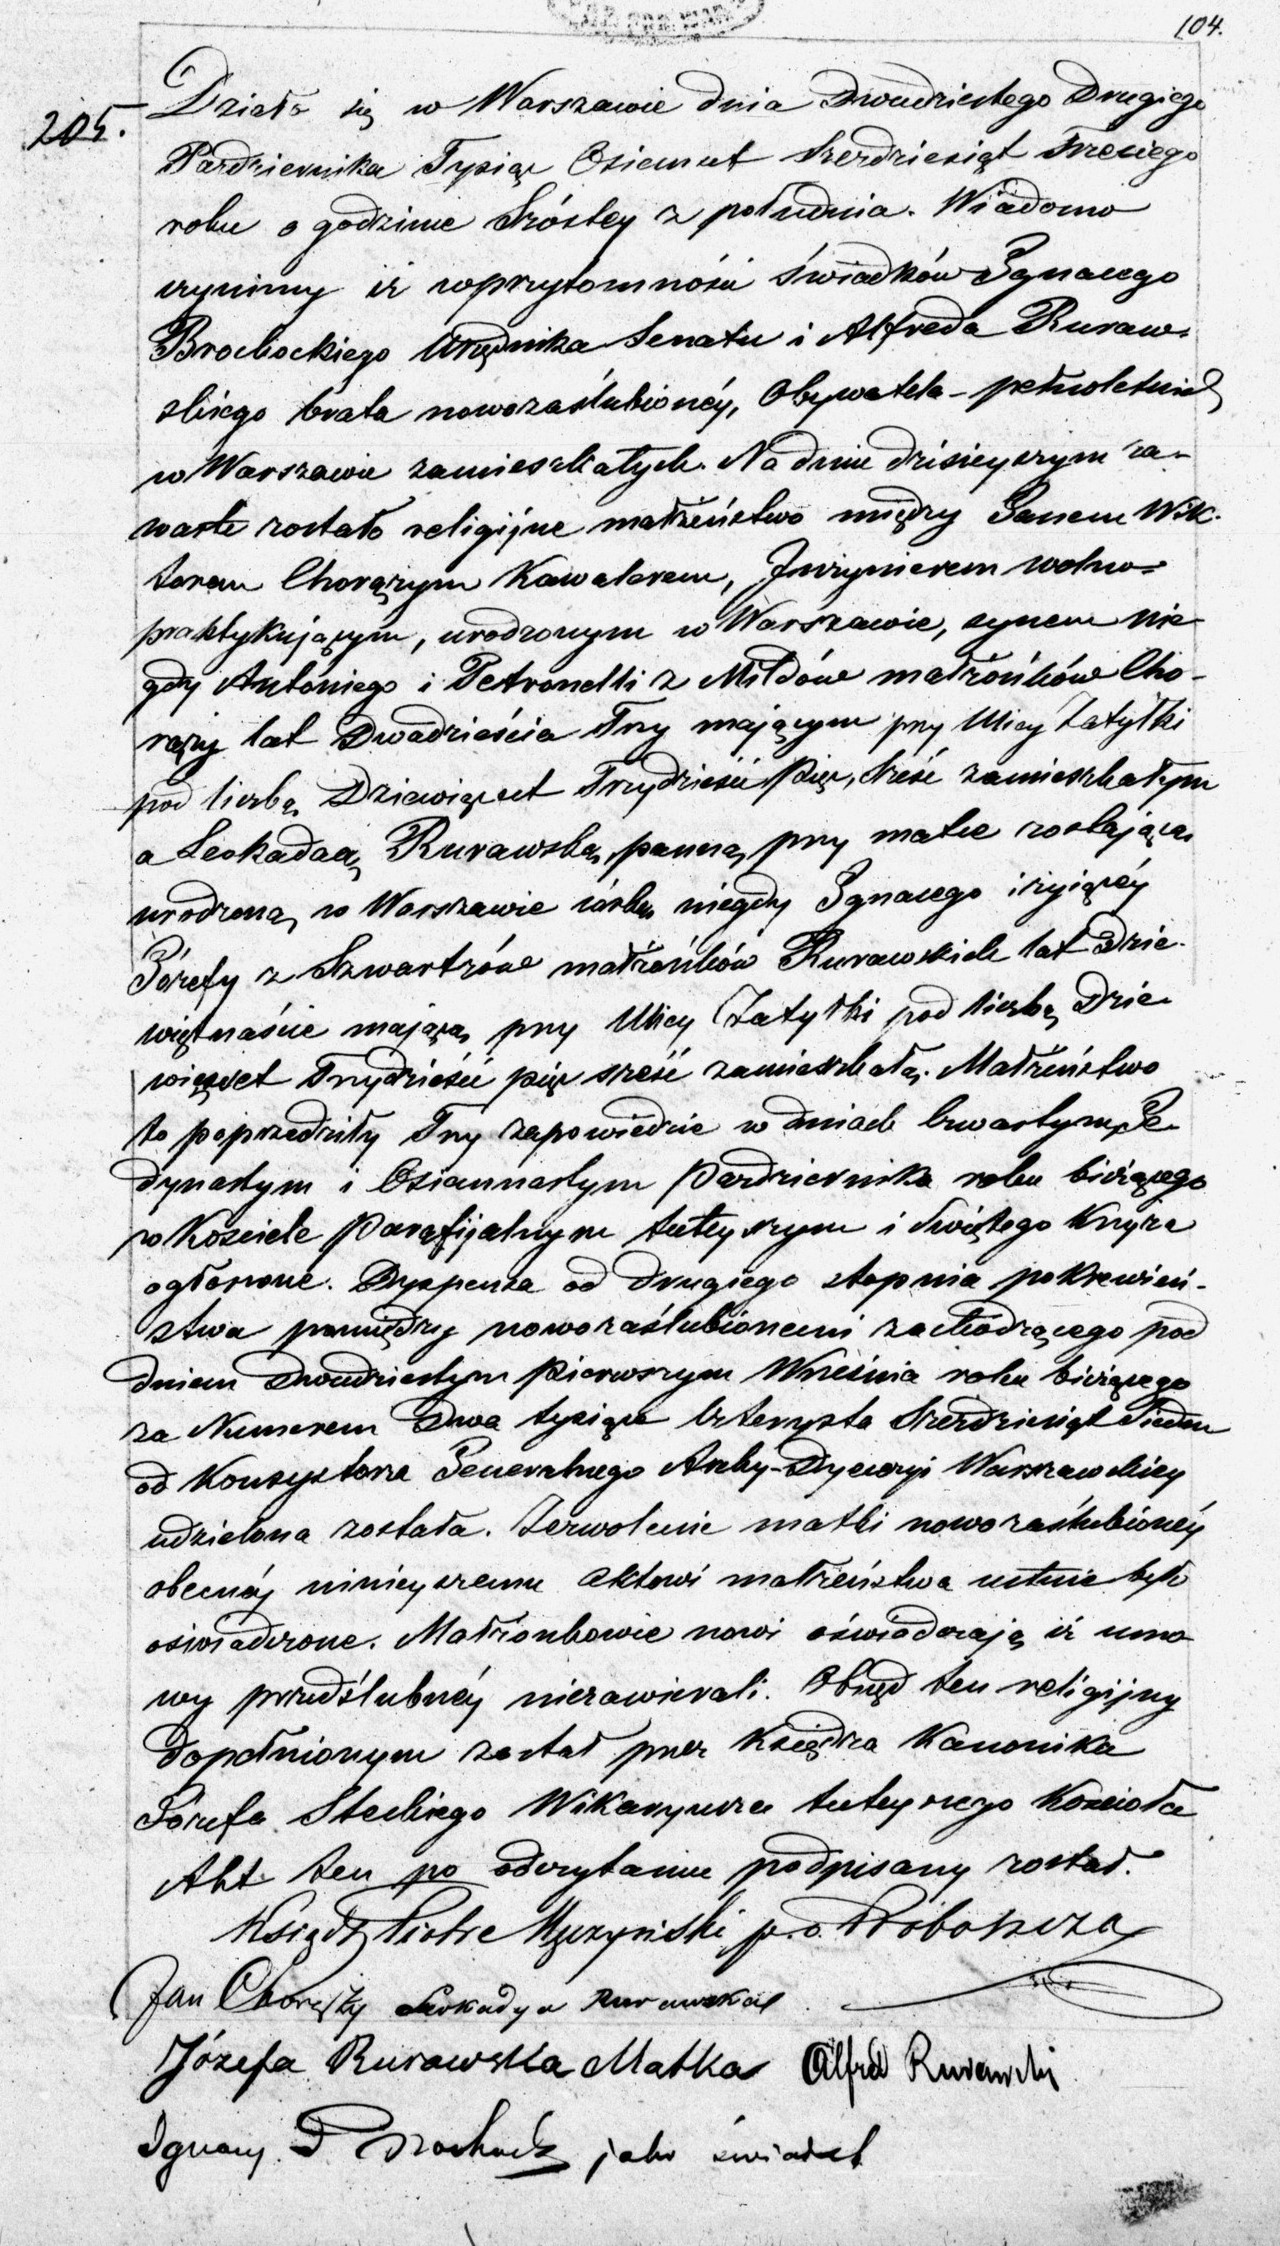 104.
205.
Działo się w Warszawie dnia Dwudziestego Drugiego
Pazdziernika Tysiąc Ośmset Sześdziesiąt Trzeciego
roku o godzinie Szóstey z południa. Wiadomo
czynimy iż wprzytomności świadków Ignacego
Brochockiego Urzędnika Senatu i Alfreda Ruraw-
skiego brata nowozaślubionéy, Obywatela - pełnoletnich
w Warszawie zamieszkałych. Na dniu dzisieyszym za-
warte zostało religijne małżeństwo między Janem Wik-
torem Chorążym Kawalerem, Inżynierem wolno-
praktykującym, urodzonym w Warszawie, synem nie-
gdy Antoniego i Petronelli z Mildów małżonków Cho-
rąży lat Dwadzieścia Trzy mającym przy Ulicy Zatyłki
pod liczbą Dziewięcset Trzydzieści Pięć, Sześć zamieszkałym
a Leokadyą Rurawską, panną, przy matce zostającą
urodzoną w Warszawie córką niegdy Ignacego i żyiącéy
Józefy z Szwartzów małżonków Rurawskich lat Dzie-
więtnaście mającą, przy Ulicy Zatyłki pod liczbą Dzie-
więcset Trzydzieści pięć sześć zamieszkałą. Małżeństwo
to poprzedziły Trzy zapowiedzie w dniach Czwartym, Je-
dynastym i Osiemnastym Pazdziernika roku bieżącego
w Kościele Parafijalnym tuteyszym i Świętego Krzyża
ogłoszone. Dyspensa od drugiego stopnia pokrewień-
stwa pomiędzy nowozaślubionemi zachodzącego pod
dniem Dwudziestym Pierwszym Września roku bieżącego
za Numerem Dwa tysiące Czterysta Sześdziesiąt Siedm
od Konsystorza Generalnego Archy-Dyecezyi Warszawskiey
udzielona została. Zezwolenie matki nowozaślubionéy
obecnéy ninieyszemu Aktowi małżeństwa ustnie było
oświadczone. Małżonkowie nowi oświadczają iż umo-
wy przedślubnéy niezawierali. Obrzęd ten religijny
dopełnionym został przez Księdza Kanonika
Józefa Steckiego Wikaryusza tuteyszego Kościoła
Akt ten po odczytaniu podpisany został.
Ksiądz Piotr p. o. Proboszcza
Jan Chorąży Leokadya Rurawska
Józefa Rurawska Matka Alfred Rurawski
Ignacy Brochocki jako świadek